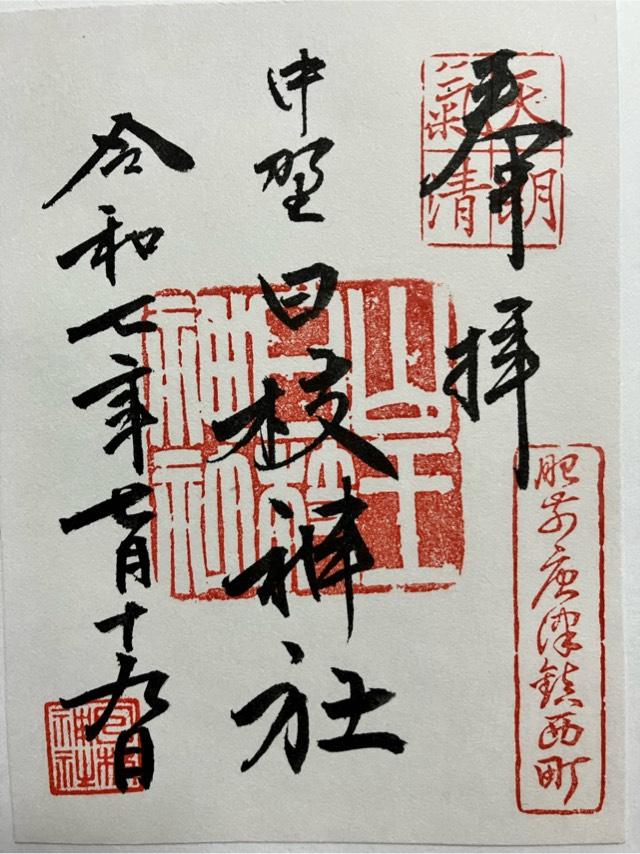 天朗氣清
奉拝
肥前唐津鎮西町
中野日枝神社
山王日枝神社
令和七年七月十九日